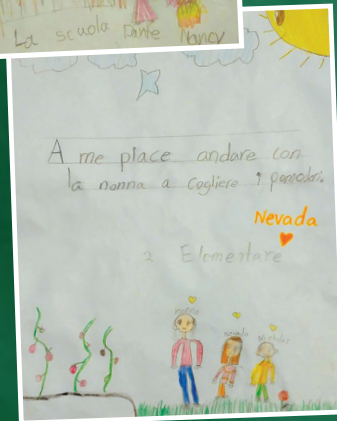 La scuola Dante Nancy
A me piace andare con
la nonna a cogliere i pomodori.
Nevada
2 Elementare
nonna
nevada
nicholas